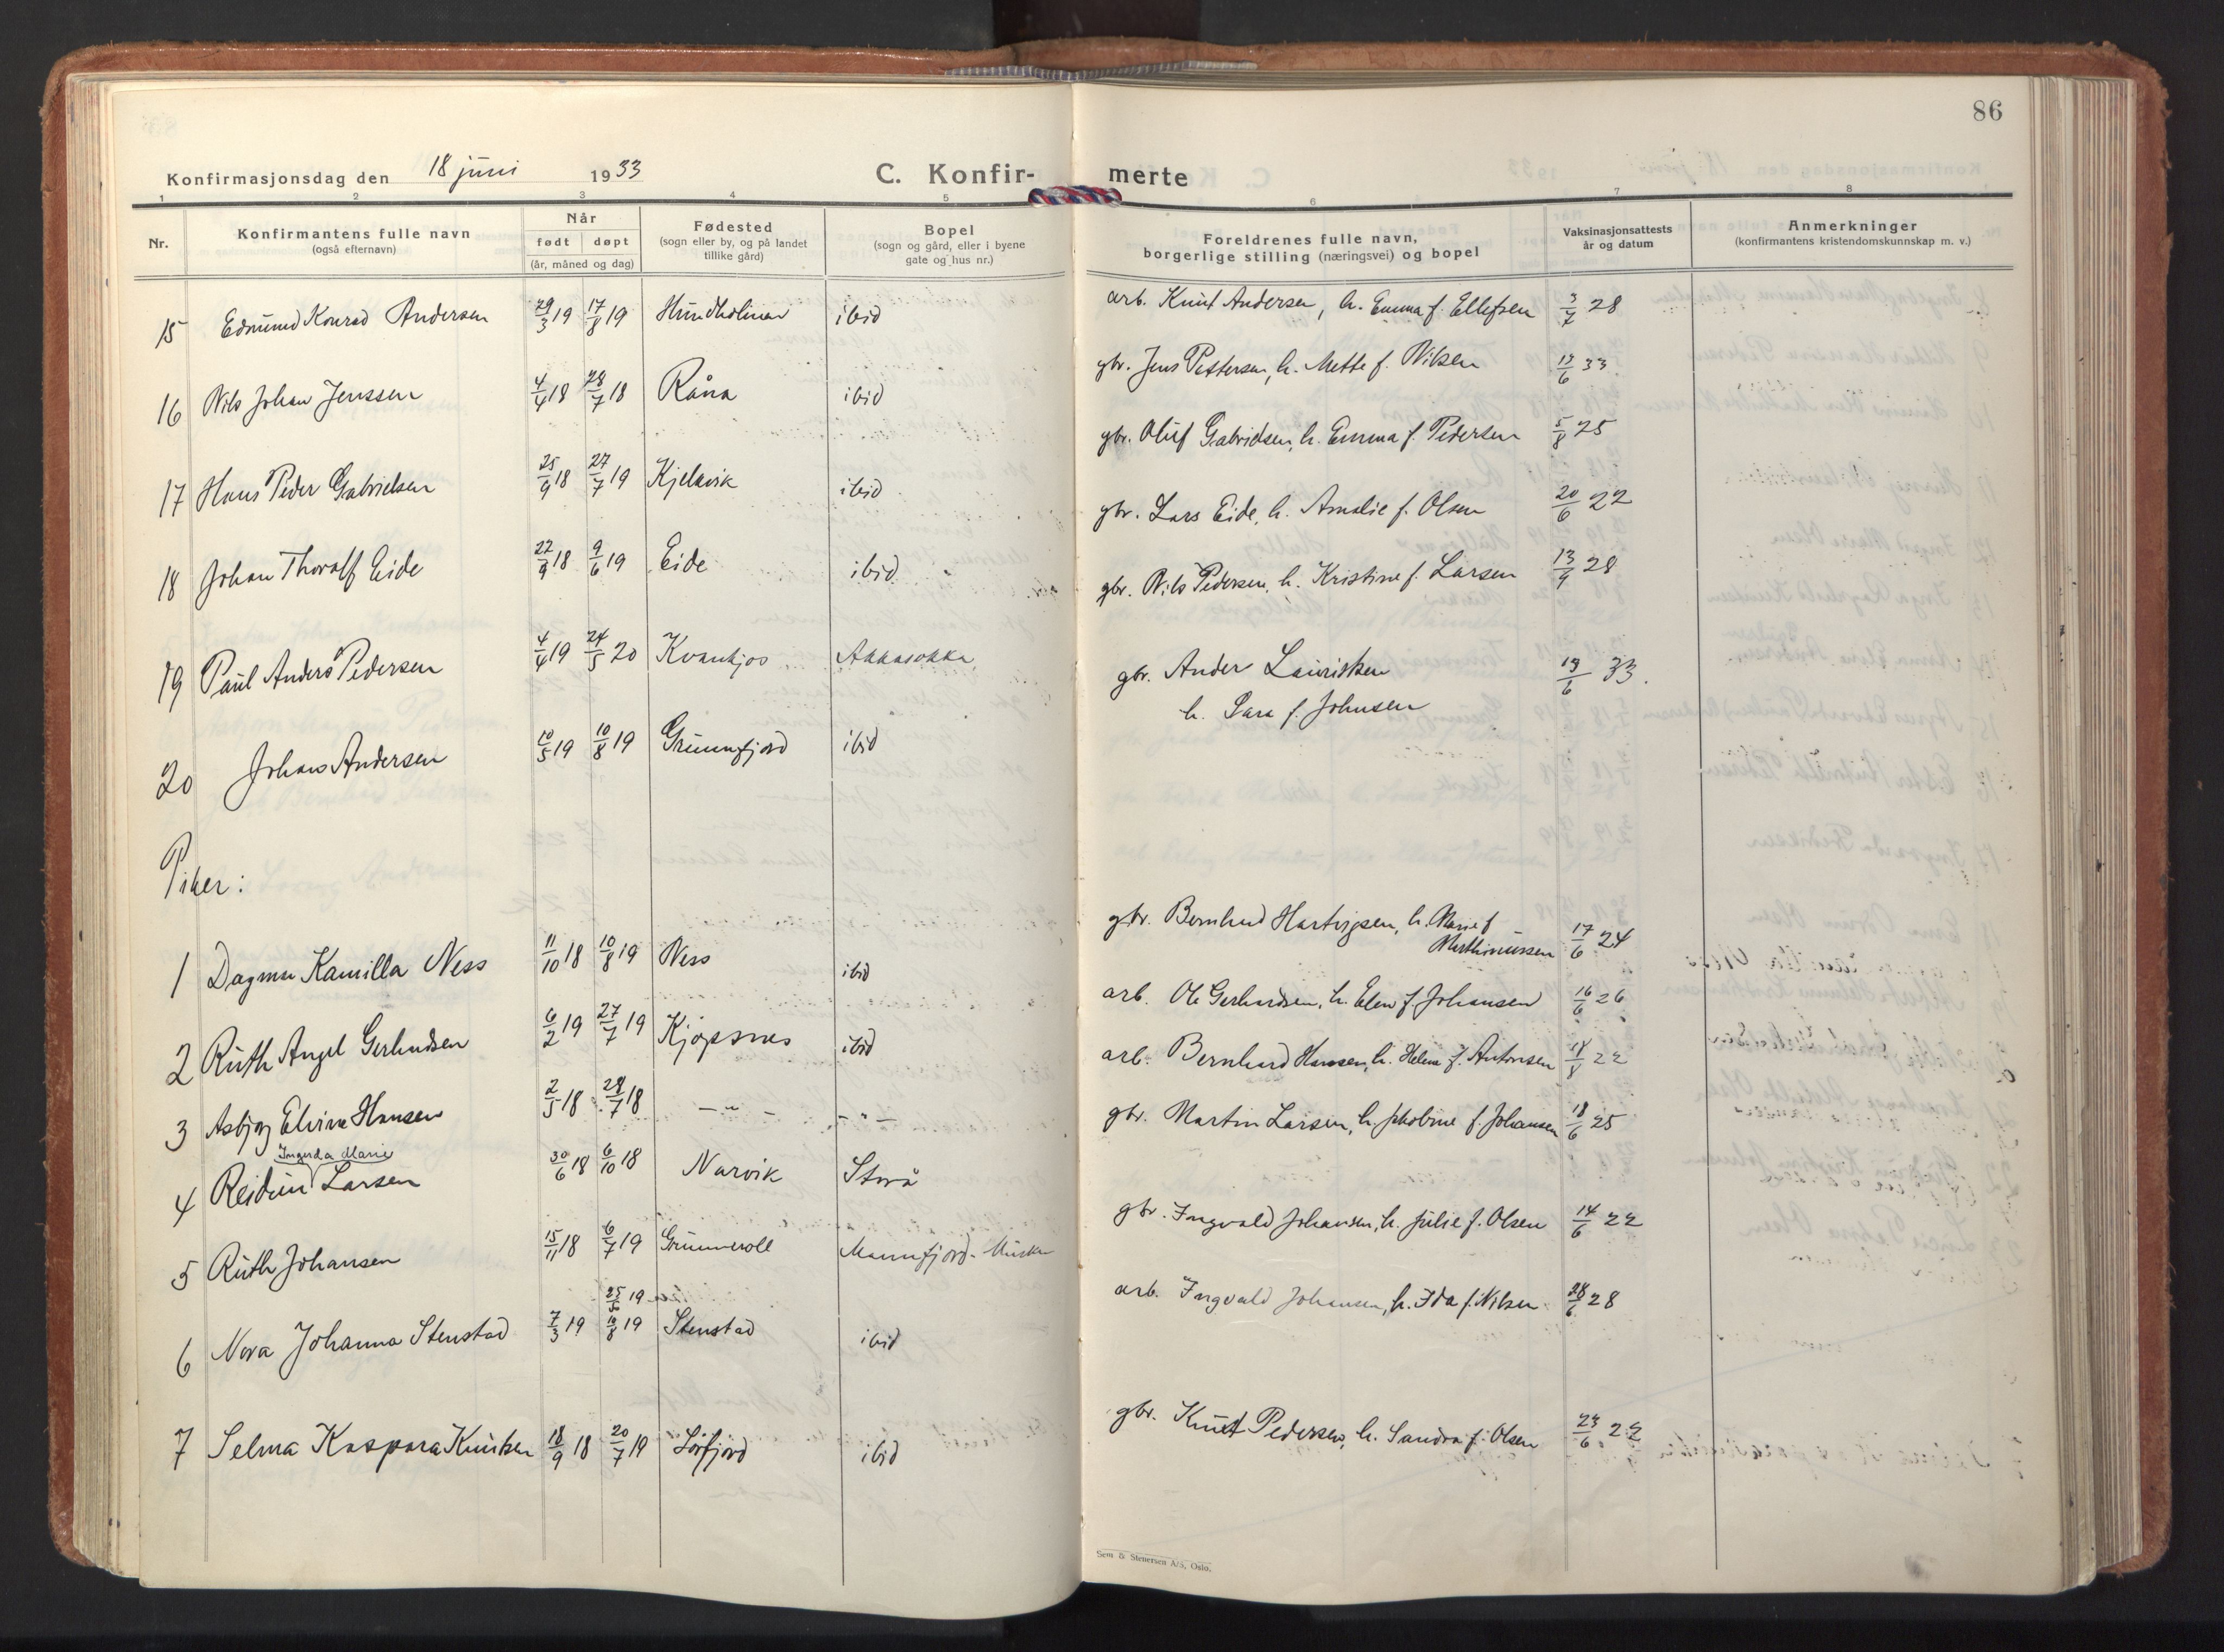 86
Konfirmasjonsdag den 18 juni 1933 C. Konfir-merte
1 2 3 4 5 6 7 8
Nr.
Konfirmantens fulle navn
(også efternavn)
Når
født døpt
(år, måned og dag)
Fødested
(sogn eller by, og på landet
tillike gård)
Bopel
(sogn og gård, eller i byene
gate og hus nr.)
Foreldrenes fulle navn,
borgerlige stilling (næringsvei) og bopel
Vaksinasjonsattests
år og datum
Anmerkninger
(konfirmantens kristendomskunnskap m. v.)
15 Edmund Konrad Andersen 29/3 19 17/8 19 Hundholmen ibid arb. Knut Andersen, h. Emma f. Ellefsen 3/7 28
16 Nils Johan Jenssen 4/4 18 28/7 18 Råna ibid gbr. Jens Pettersen, h. Mette f. Nilsen 6 33.
17 Hans Peder Gabrielsen 25/9 18 27/7 19 Kjelvik ibid gbr. Oluf Gabrielsen, h. Emma f. Pedersen 5/8 25
18 Johan Thoralf Eide 22/9 18 9/6 19 Eide ibid. gbr. Lars Eide, h. Amalie f. Olsen 20/6 22
19 Paul Anders Pedersen 4/4 19 24/5 20 Kvankjos Akkasokka gbr. Nils Pedersen, h. Kristine f. Larsen 13/9 28
20 Johan Andersen 10/5 19 10/8 19 Grunnfjord ibid gbr. Ander Lauritsen 6 33.
h. Sara f. Johnsen
Piker:
1 Dagmar Kamilla Ness 11/10 18 10/8 19 Ness ibid gbr. Bernhard Hartvigsen, h. Marie f
Marthinussen 17/6 24
2 Ruth Angel Gerhardsen 6/2 19 27/7 19 Kjøpsnes ibid arb. Ole Gerhardsen, h. Elen f. Johansen 16/6 26
3 Asbjørg Elvine Hansen 2/5 18 28/7 18 — " — — " — arb. Bernhard Hansen, h. Helene f. Antonsen 8 22
Ingerda Marie
4 Reidun Larsen 30/6 18 6/10 18 Narvik Storå gbr. Martin Larsen, h. Jakobine f. Johansen 18/6 25
5 Ruth Johansen 15/11 18 6/7 19 Grunneroll Mannfjord - Musken gbr. Ingvald Johansen, h. Julie f. Olsen 14/6 22
25/5 19
6 Nora Johanna Stenstad 7/3 19 10/8 19 Stenstad ibid arb. Ingvald Johansen, h. Ida f. Nilsen 28/6 28
7 Selma Kaspara Knutsen 18/9 18 20/7 19 Lørfjord ibid gbr. Knut Pedersen, h. Sandra f. Olsen 23/6 22
Sem & Stenersen A/S, Oslo.